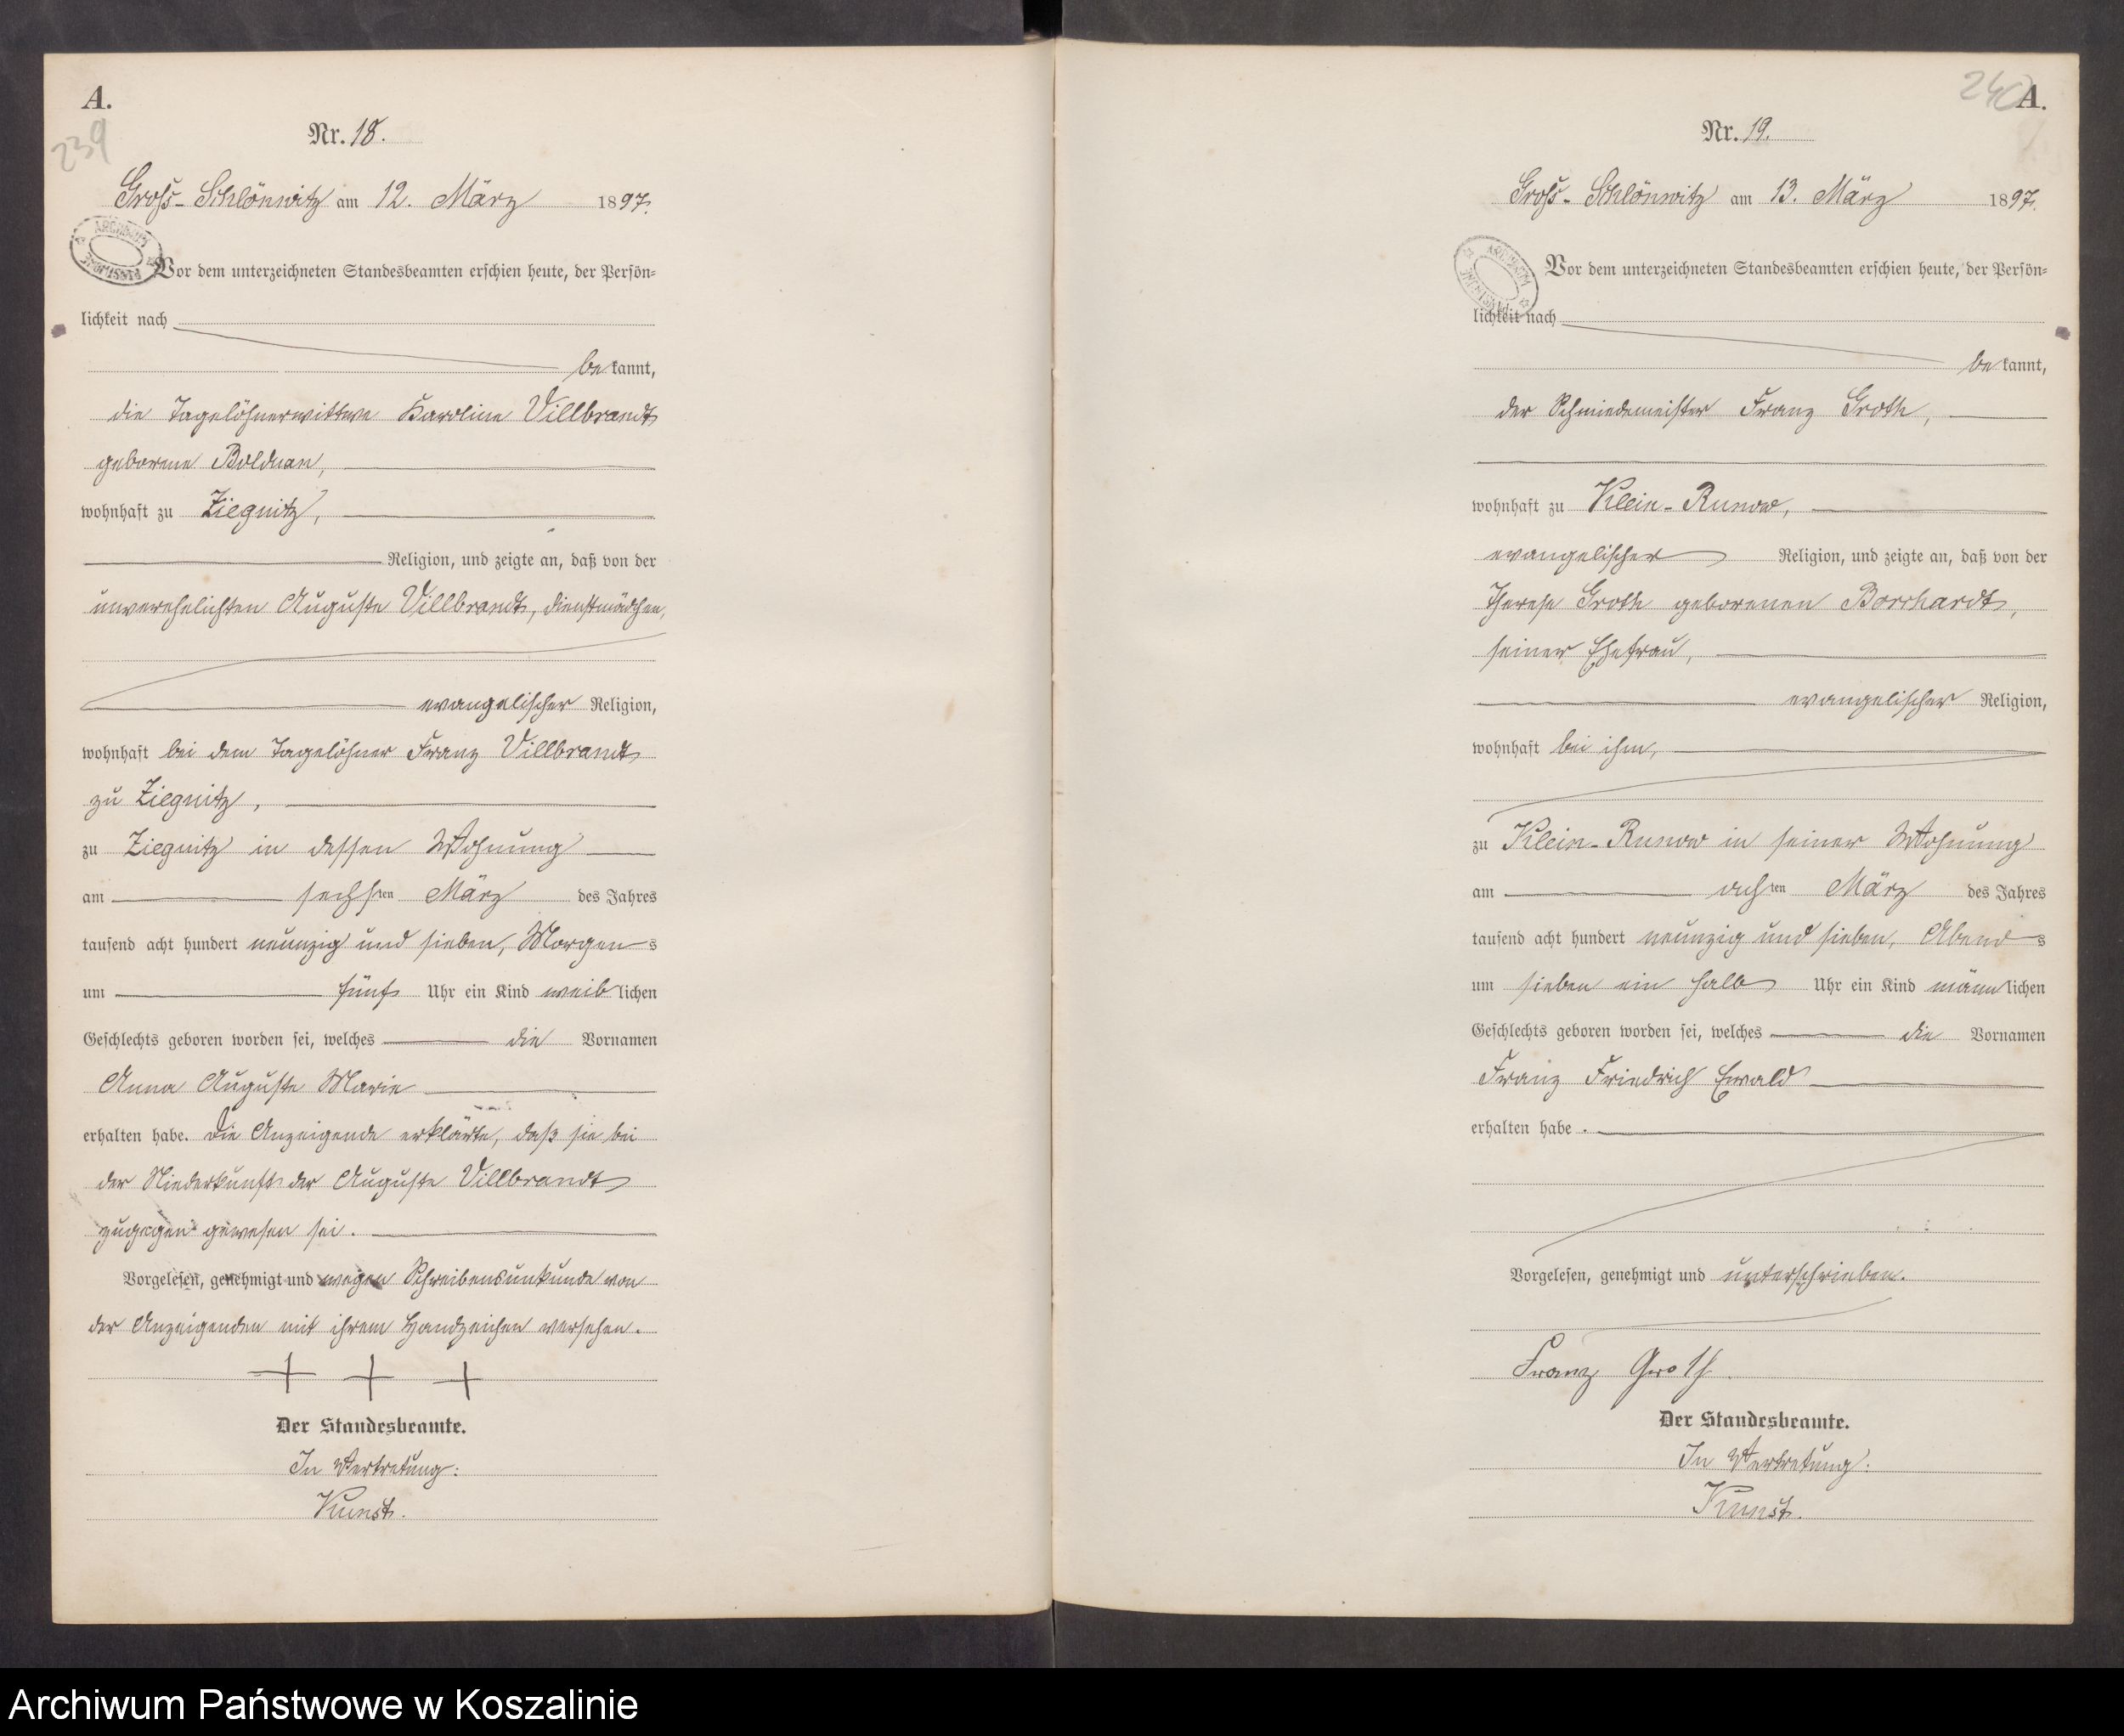 A.
239
Nr. 18.
Groß-Schlönwitz am 12. März 1897.
ARCHIWUM PAŃSTWOWE
Vor dem unterzeichneten Standesbeamten erschien heute, der Persön=
lichkeit nach
be kannt,
die Tagelöhnerwittwe Karoline Villbrandt
geborene Bolduan,
wohnhaft zu Ziegnitz,
Religion, und zeigte an, daß von der
unverehelichten Auguste Villbrandt, Dienstmädchen,
evangelischer Religion,
wohnhaft bei dem Tagelöhner Franz Villbrandt
zu Ziegnitz,
zu Ziegnitz in dessen Wohnung
am sechsten März des Jahres
tausend acht hundert neunzig und sieben, Morgens
um fünf Uhr ein Kind weiblichen
Geschlechts geboren worden sei, welches die Vornamen
Anna Auguste Marie
erhalten habe. Die Anzeigende erklärte, daß sie bei
der Niederkunft der Auguste Villbrandt
zugegen gewesen sei.
Vorgelesen, genehmigt und wegen Schreibensunkunde von
der Anzeigenden mit ihrem Handzeichen versehen.
+ + +
Der Standesbeamte.
In Vertretung:
Kunst.
240
A.
Nr. 19.
Groß-Schlönwitz am 13. März 1897.
ARCHIWUM PAŃSTWOWE
Vor dem unterzeichneten Standesbeamten erschien heute, der Persön=
lichkeit nach
be kannt,
der Schmiedemeister Franz Groth,
wohnhaft zu Klein-Runow,
evangelischer Religion, und zeigte an, daß von der
Therese Groth geborenen Borchardt,
seiner Ehefrau,
evangelischer Religion,
wohnhaft bei ihm,
zu Klein-Runow in seiner Wohnung
am achten März des Jahres
tausend acht hundert neunzig und sieben, Abends
um sieben ein halb Uhr ein Kind männlichen
Geschlechts geboren worden sei, welches die Vornamen
Franz Friedrich Ewald
erhalten habe.
Vorgelesen, genehmigt und unterschrieben.
Franz Groth.
Der Standesbeamte.
In Vertretung:
Kunst.
Archiwum Państwowe w Koszalinie